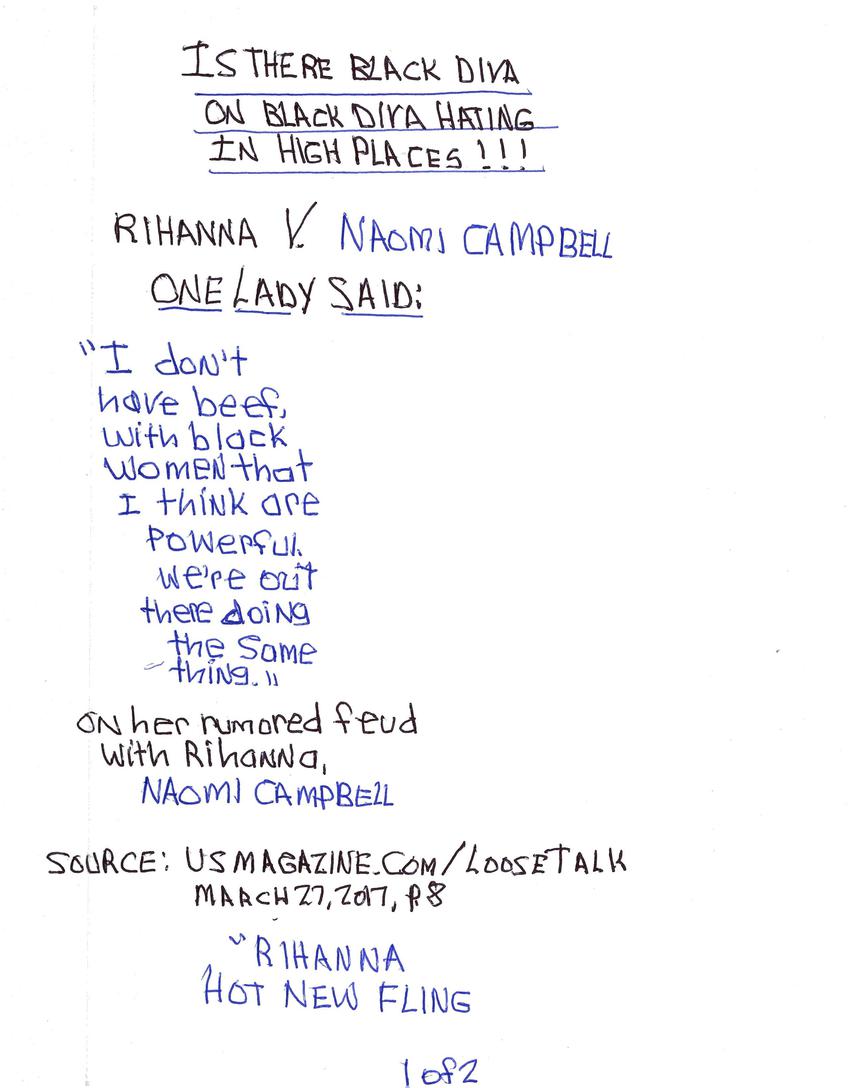 IS THERE BLACK DIVA
ON BLACK DIVA HATING
IN HIGH PLACES!!!
RIHANNA V. NAOMI CAMPBELL
ONE LADY SAID:
"I don't
have beef,
with black
women that
I think are
Powerful.
we're out
there doing
the same
thing."
ON her rumored feud
with Rihanna,
NAOMI CAMPBELL
SOURCE: USMAGAZINE.COM/LOOSETALK
MARCH 27, 2017, P8
"RIHANNA
HOT NEW FLING
1 of 2